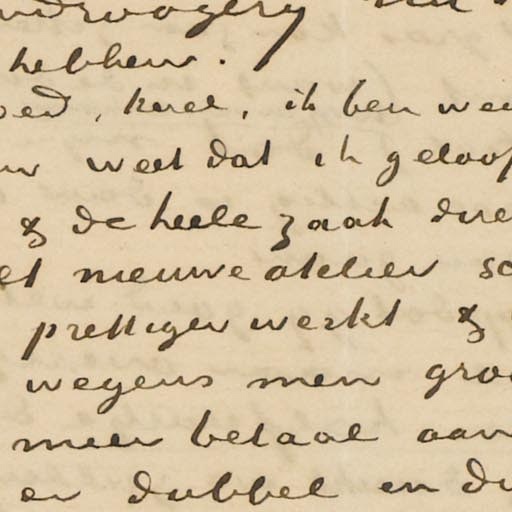 hebben.
oed, kerel, ik ben wee
uw weet dat ik geloof
& de heele zaak dure
et nieuwe atelier so
prettiger werkt &
wegens mijn groo
meer betaal aan
er dubbel en du